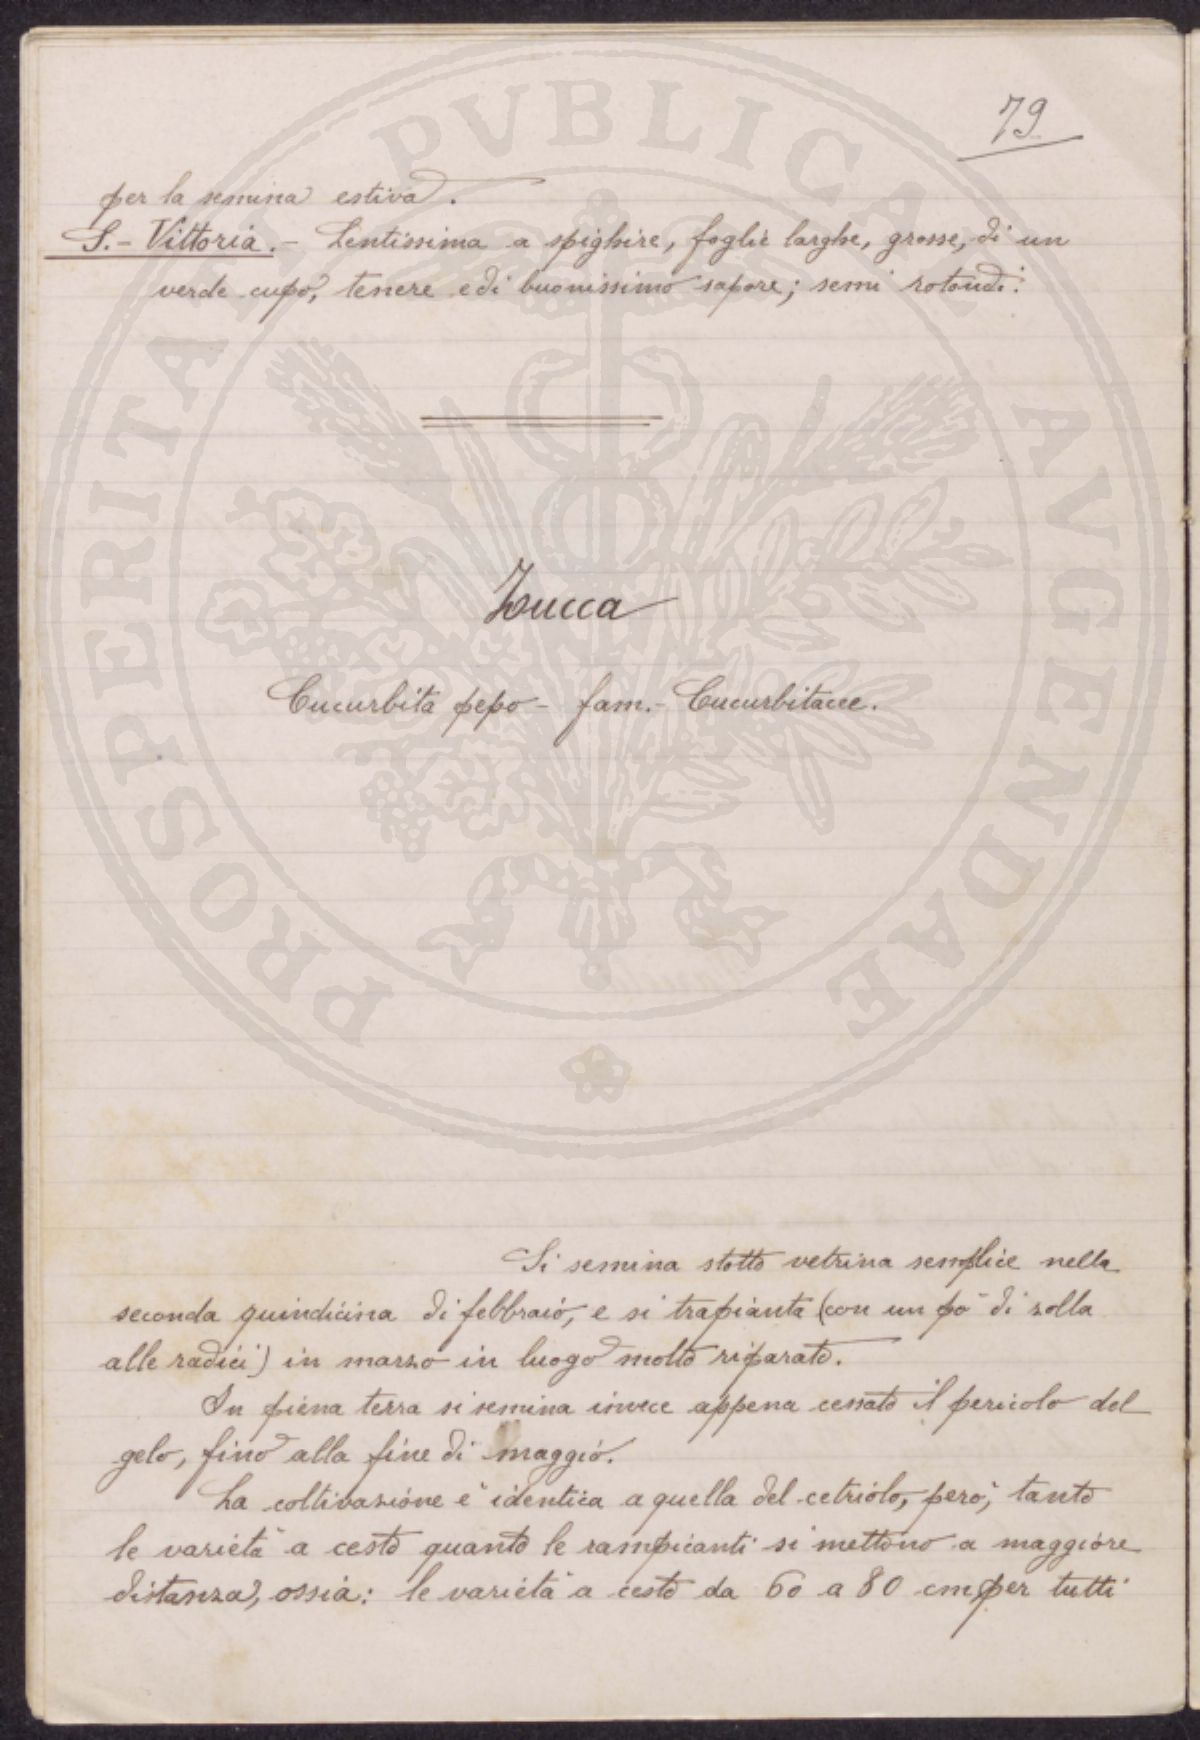 79
per la semina estiva.
S.- Vittoria.- Lentissima a spighire, foglie larghe, grosse, di un
verde cupo, tenere e di buonissimo sapore; semi rotondi.
Zucca
Cucurbita pepo - fam.- Cucurbitacee.
Si semina stotto vetrina semplice nella
seconda quindicina di febbraio, e si trapianta (con un po' di zolla
alle radici) in marzo in luogo molto riparato.
In piena terra si semina invece appena cessato il pericolo del
gelo, fino alla fine di maggio.
La coltivazione è identica a quella del cetriolo, però, tanto
le varietà a cesto quanto le rampicanti si mettono a maggiore
distanza, ossia: le varietà a cesto da 60 a 80 cm per tutti
PROSPERITATI PVBLICAE AVGENDAE